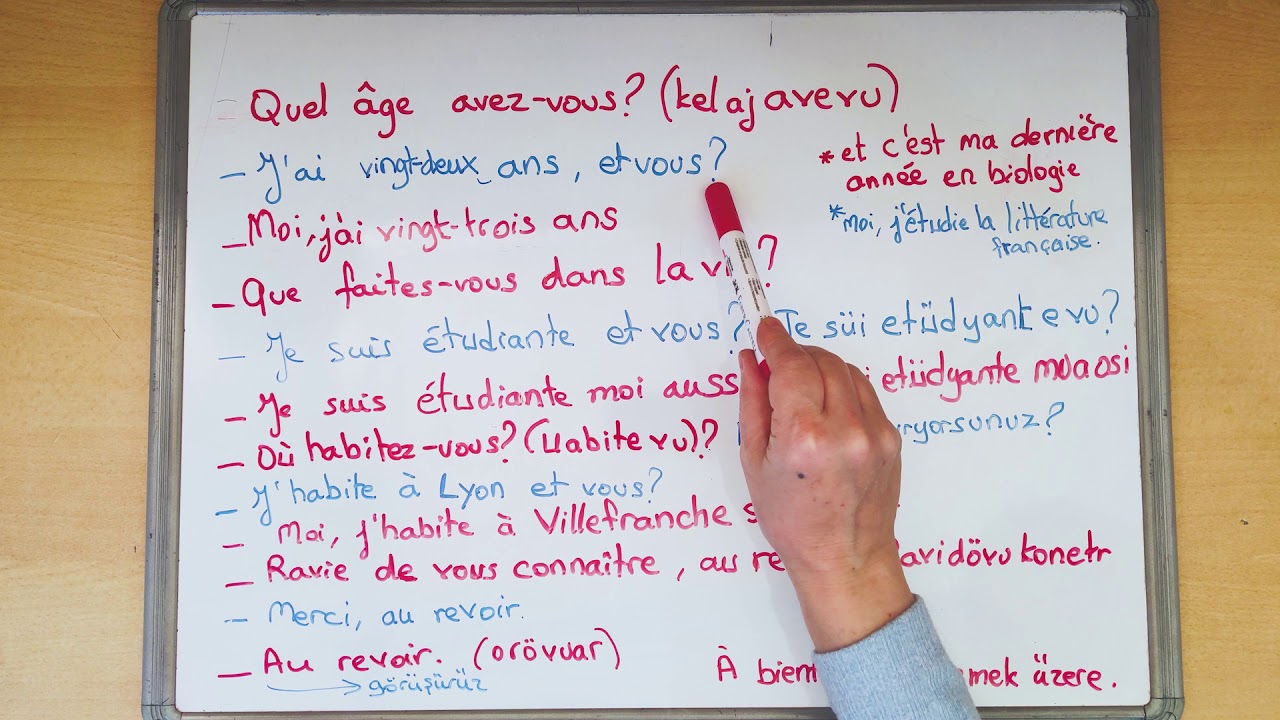 Quel âge avez-vous? (kel aj avevu)
- J'ai vingt-deux ans, et vous?
*et c'est ma dernière
année en biologie
- Moi, j'ai vingt-trois ans
*moi, j'étudie la littérature
française.
- Que faites-vous dans la ?
- Je suis étudiante et vous? Je süi etüdyant e vu?
- Je suis étudiante moi etüdyante muaosi
- Où habitez-vous? (Uabite vu)?
- J'habite à Lyon et vous?
- Moi, j'habite à Villefranche
- Ravie de vous connaître, au ravidövu konetr
- Merci, au revoir.
- Au revoir. (orövuar)
görüşürüz
À üzere.